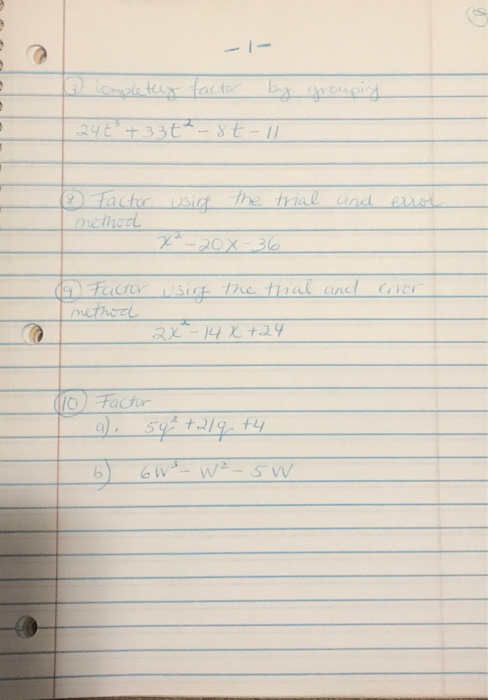 -1-
⑦ Completely factor by grouping
24t³ + 33t² - 8t - 11
⑧ Factor using the trial and error
method
x² - 20x - 36
⑨ Factor using the trial and error
method
2x² - 14x + 24
⑩ Factor
a). 5q² + 21q + 4
b) 6w³ - w² - 5w